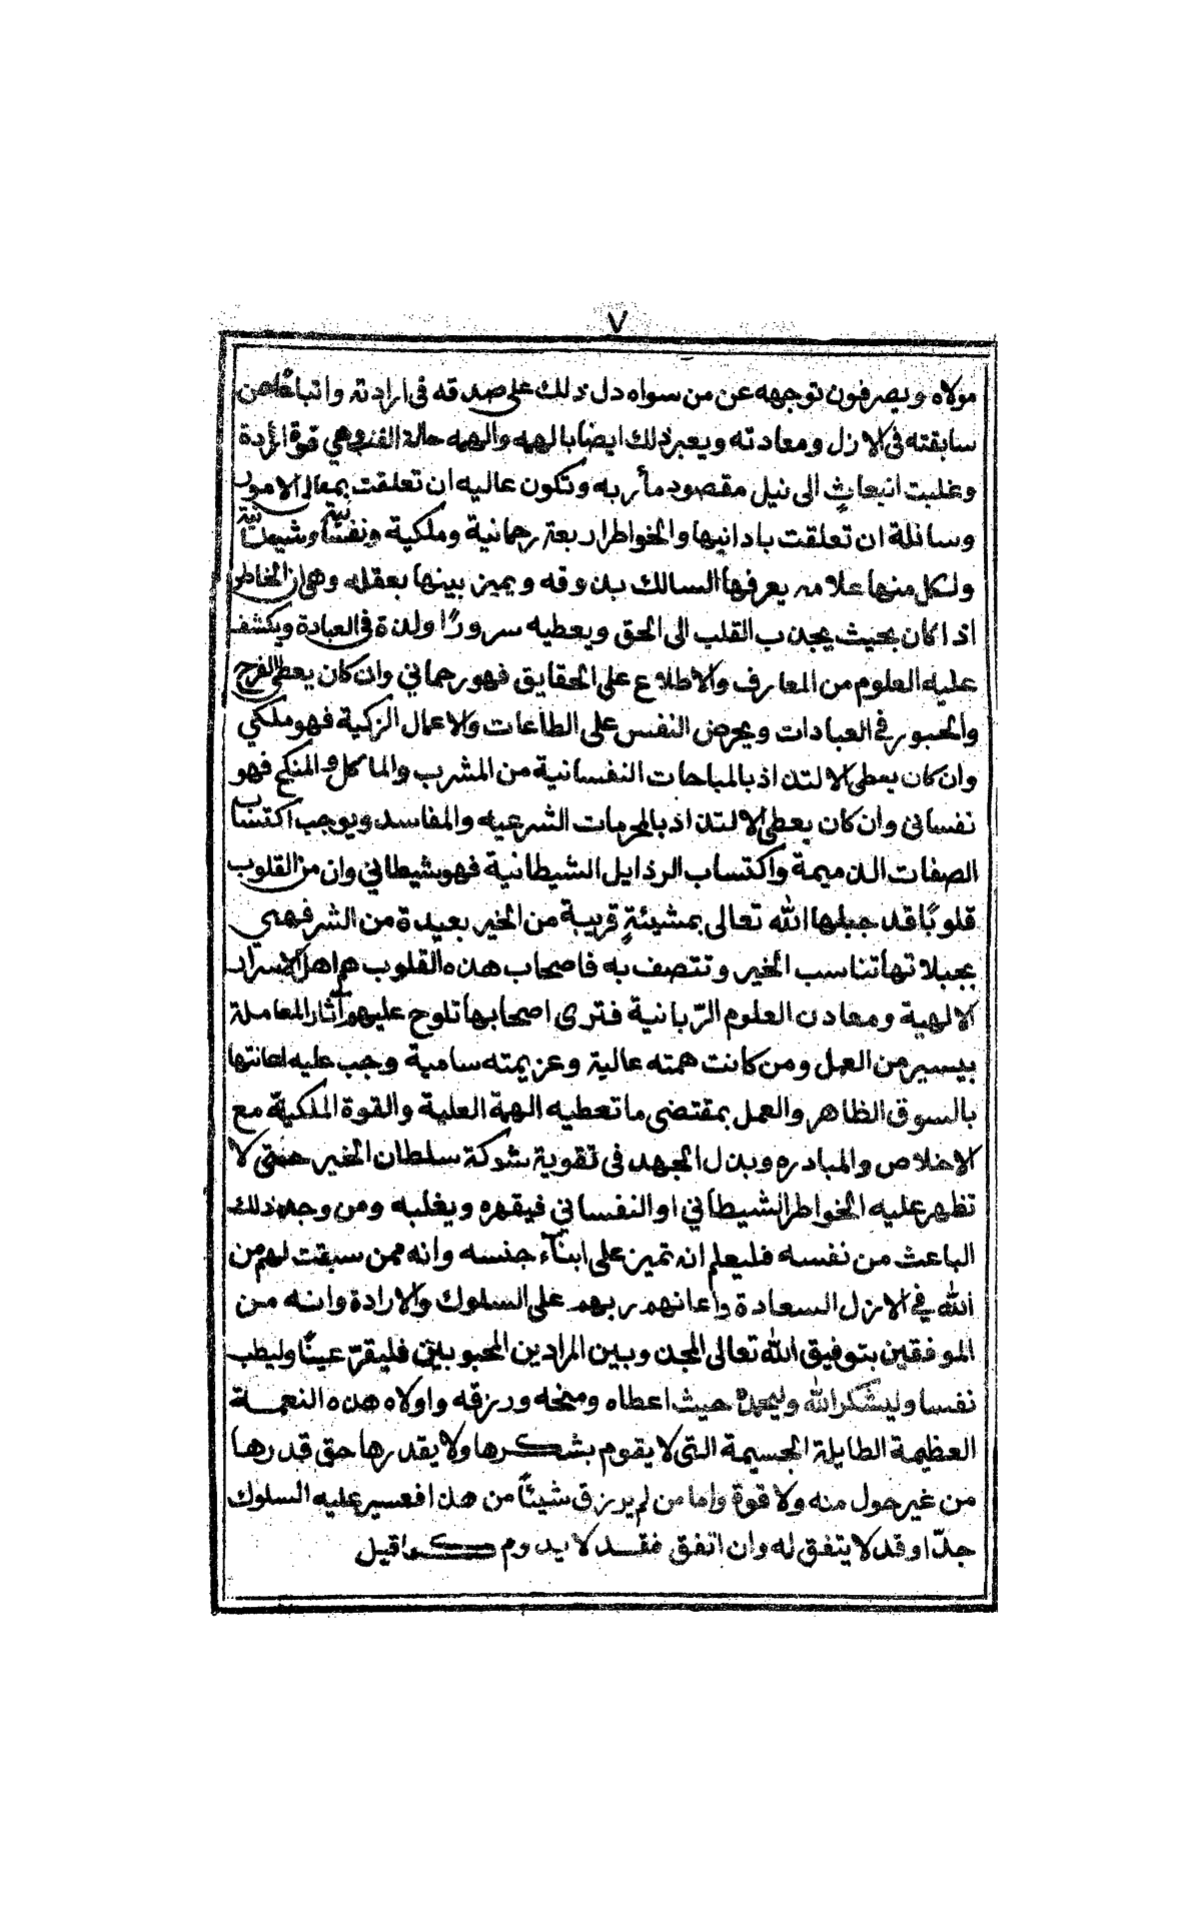 ٧
مولاه ويصرفون توجهه عن من سواه دل ذلك على صدقه في ارادته واتباعًا من
سابقته في الازل ومعادته ويعبر ذلك ايضا بالهمه والهمه حالة القلب وهي قوة ارادة
وغلبت انبعاثٍ الى نيل مقصود مأربه وتكون عاليه ان تعلقت بمعالى الامور
وسافلة ان تعلقت بادانيها والخواطر اربعة رحمانية وملكية ونفسانية وشيطانية
ولكل منها علامه يعرفها السالك بذوقه ويميز بينها بعقله وهى ان الخاطر
اذا كان بحيث يجذب القلب الى الحق ويعطيه سرورًا ولذة في العبادة ويكشف
عليه العلوم من المعارف والاطلاع على الحقايق فهو رحماني وان كان يعطى الفرح
والحبور في العبادات ويحرض النفس على الطاعات والاعمال الزكية فهو ملكي
وان كان يعطى الالتذاذ بالمباحات النفسانية من المشرب والماكل والمنكح فهو
نفسانى وان كان يعطى الالتذاذ بالمحرمات الشرعيه والمفاسد ويوجب اكتساب
الصفات الذميمة واكتساب الرذايل الشيطانية فهو شيطاني وان من القلوب
قلوبًا قد جبلها الله تعالى بمشيئةٍ قريبة من الخير بعيدة من الشر فهى
بجبلاتها تناسب الخير وتتصف به فاصحاب هذه القلوب هم اهل الاسرار
الالهية ومعادن العلوم الرّبانية فترى اصحابها تلوح عليهم آثار المعاملة
بيسير من العمل ومن كانت همته عالية وعزيمته سامية وجب عليه اعانتها
بالسوق الظاهر والعمل بمقتضى ما تعطيه الهمة العلية والقوة الملكية مع
الاخلاص والمبادره وبذل الجهد فى تقوية شوكة سلطان الخير حتى لا
تظهر عليه الخواطر الشيطاني او النفساني فيقهره ويغلبه ومن وجد ذلك
الباعث من نفسه فليعلم انه تميز على ابناء جنسه وانه ممن سبقت لهم من
الله في الازل السعادة واعانهم ربهم على السلوك والارادة وانه من
الموفقين بتوفيق الله تعالى المجد وبين المرادين المحبوبين فليقرّ عينًا وليطب
نفسا وليشكر الله وليحمده حيث اعطاه ومنحه ورزقه واولاه هذه النعمة
العظيمة الطايلة الجسيمة التى لا يقوم بشكرها ولا يقدرها حق قدرها
من غير حول منه ولا قوة واما من لم يرزق شيئًا من هذا فعسير عليه السلوك
جدّا وقد لا يتفق له وان اتفق فقد لا يدوم كما قيل